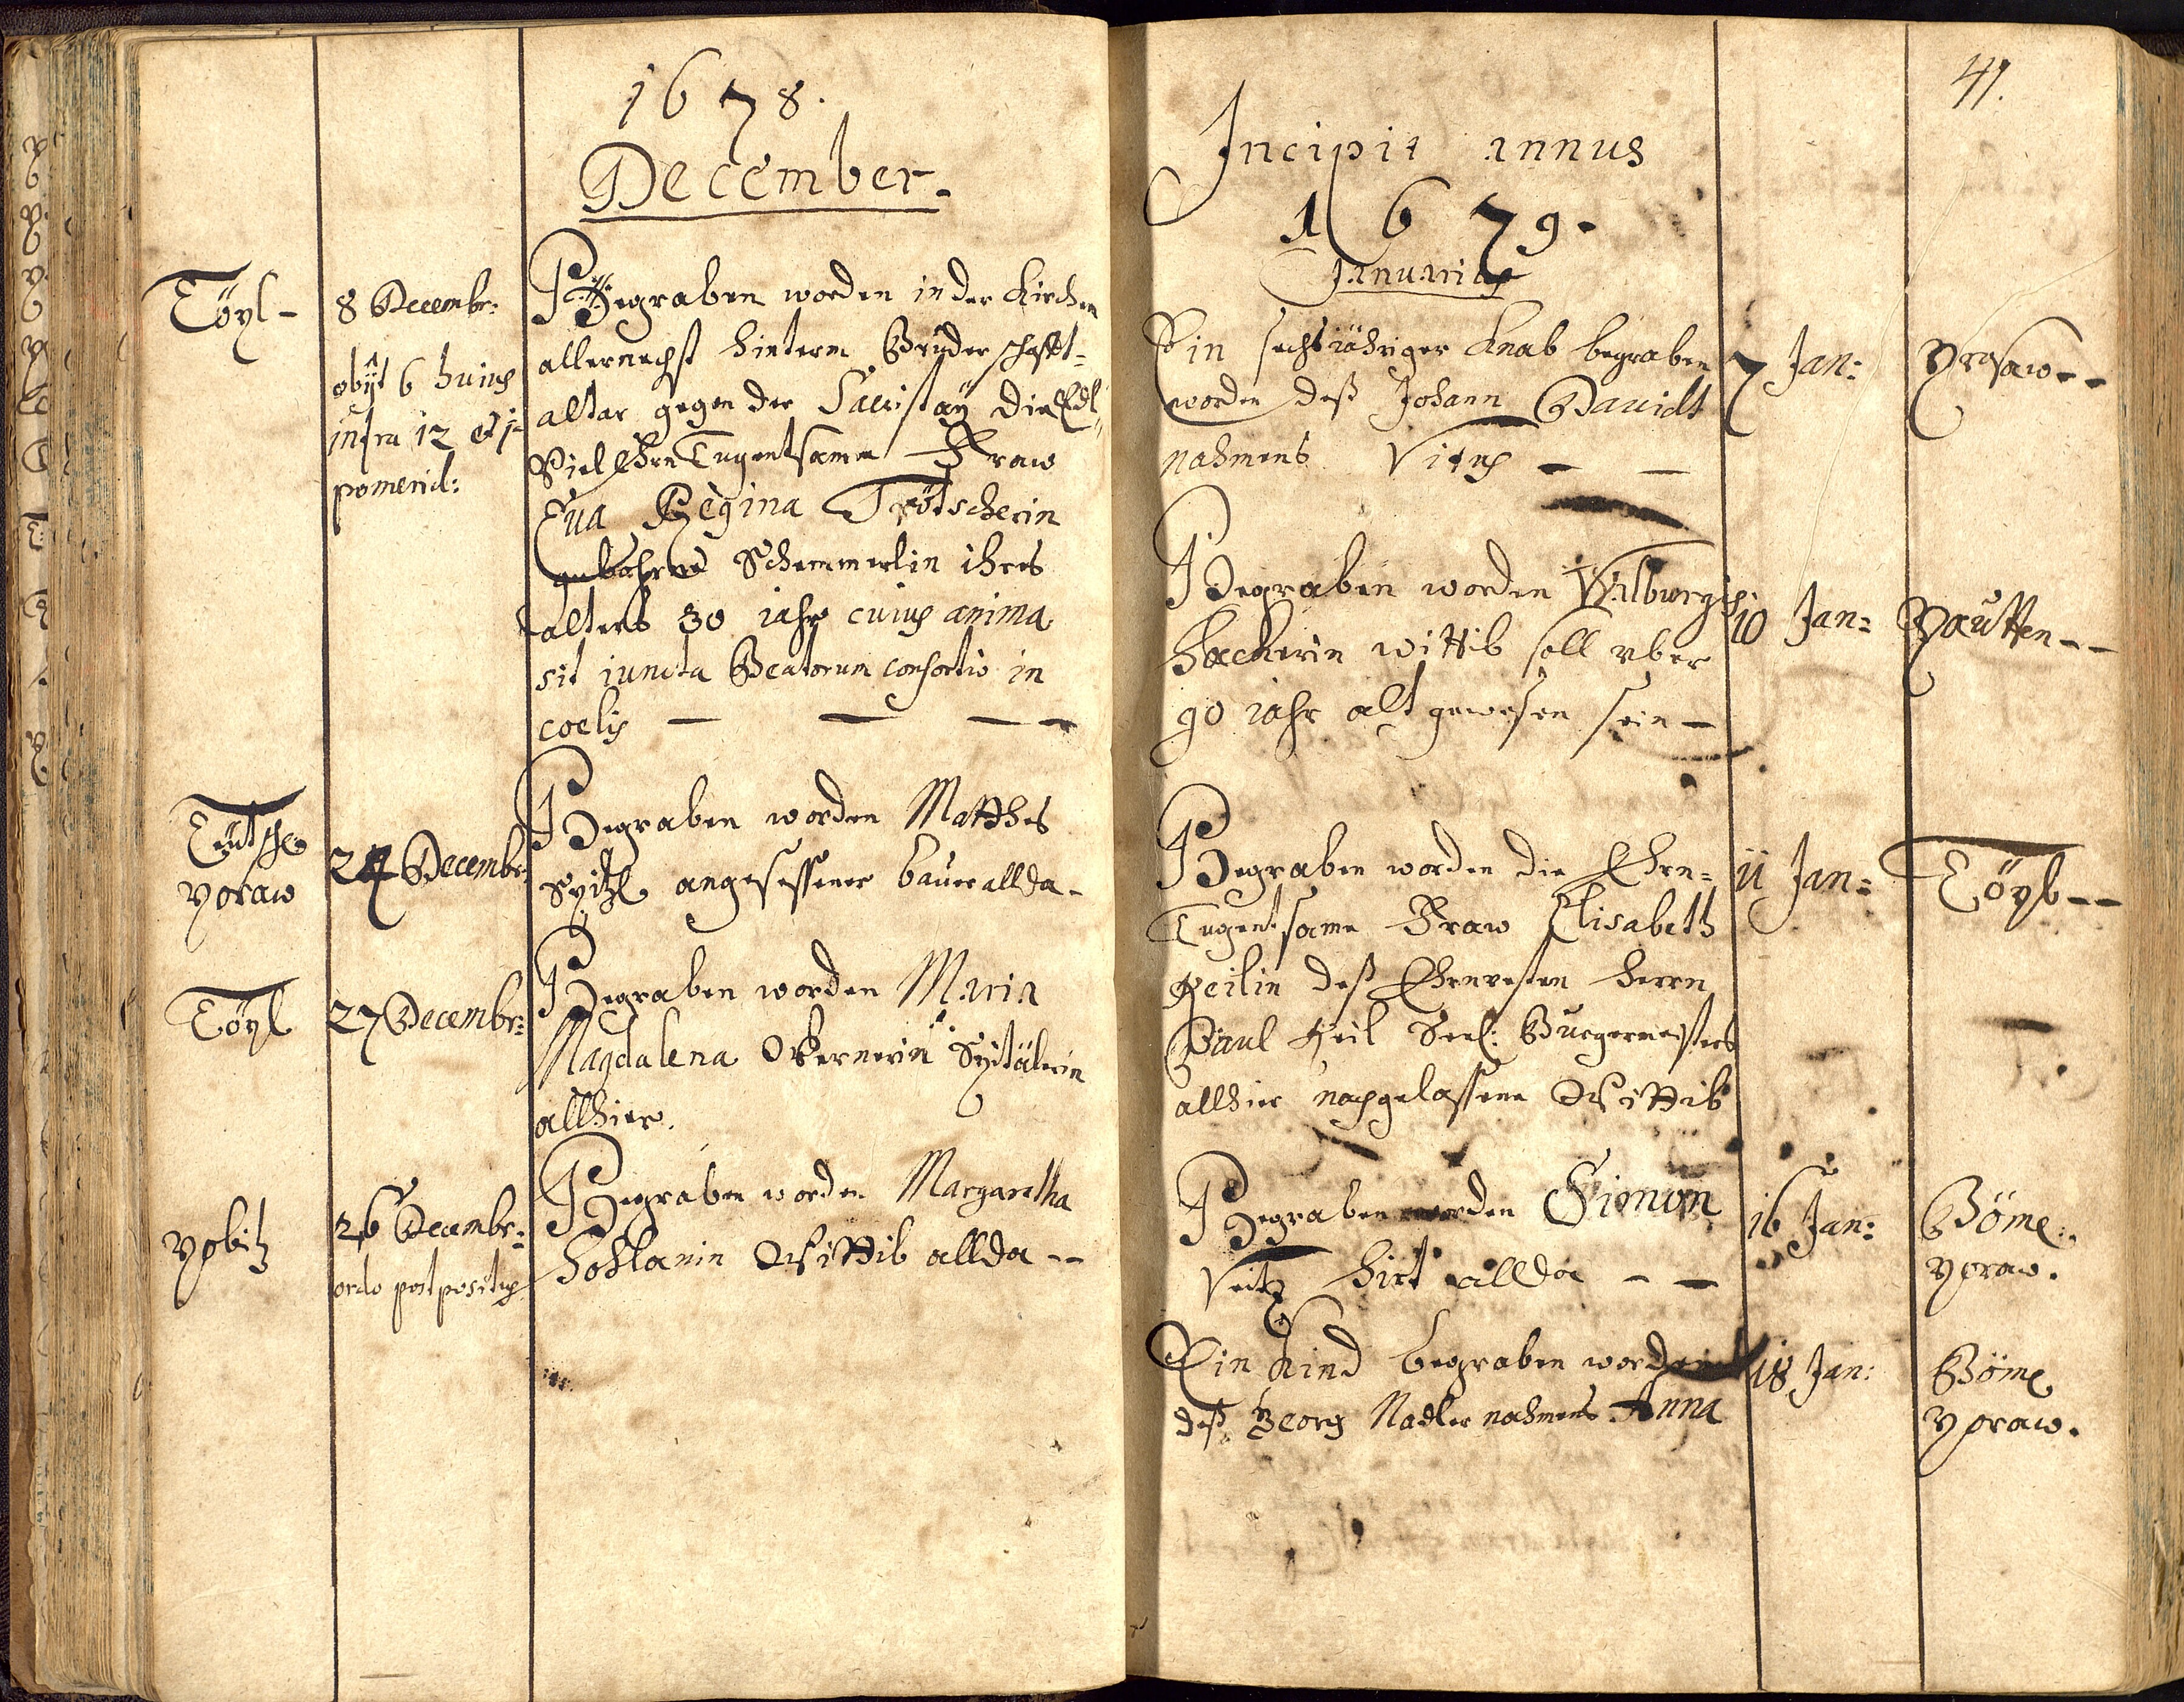 1678.
December.
Töyl -
8 Decembr:
obijt 6 huius
infra 12 et j
pomerid:
Begraben worden in der Kirchen
allernechst hinterm Bruderschafft-
altar gegen der Sacristaÿ die Edl
Viel Ehrn Tugentsame Fraw
Eva Regina Trötscherin
gebohrne Schemmerlin ihres
alters 30 jahr cuius anima
sit iuncta Beatorum consortio in
coelis — — —
Teütsch
poraw
24 Decembr:
Begraben worden Matthes
Spitzl angesessener baur allda -
Töyl
27 Decembr:
Begraben worden Maria
Magdalena Spitälerin
allhier.
26 Decembr:
ordo postpositus
Begraben worden Margaretha
Wittib allda --
41.
Incipit annus
1679.
Januarius
Ein sechsjähriger Knab begraben
worden deß Johann Davidt
nahmens Vitus — —
7 Jan:
Begraben worden Walburgis
Hackerin wittib soll vber
90 jahr alt gewesen sein —
10 Jan:
Begraben worden die Ehrn-
Tugentsame Fraw Elisabeth
Keilin deß Ehrnvesten Herrn
Paul Keil Seel: Burgermeisters
allhier nachgelassene Wittib
11 Jan:
Töyl --
Begraben worden Simon
Veitz hirt allda - -
16 Jan:
Böme
poraw.
Ein Kind begraben worden
deß Georg Nadler nahmens Anna
18 Jan:
Böm
poraw.